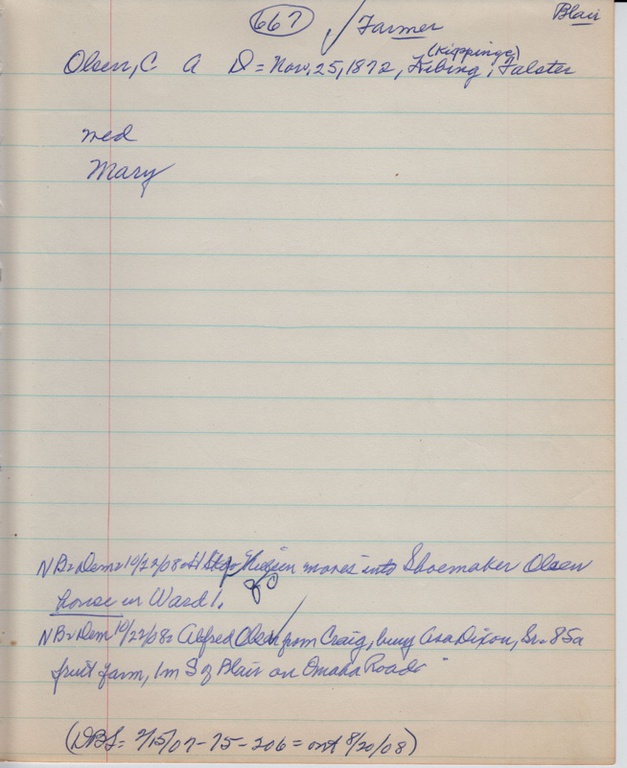 667 Farmer Blair
(Kippinge)
Olsen, C. A D = Nov. 25, 1872, , Falster
med
Mary
NB=Dem=10/22/08= moves into Shoemaker Olsen
house in Ward 1.
NB=Dem 10/22/08= Alfred Olsen from Craig, buy Asa Dixon, Sr. 85a
fruit farm, 1m S of Blair on Omaha Road
(DBS= 2/15/07-75-206= 8/20/08)